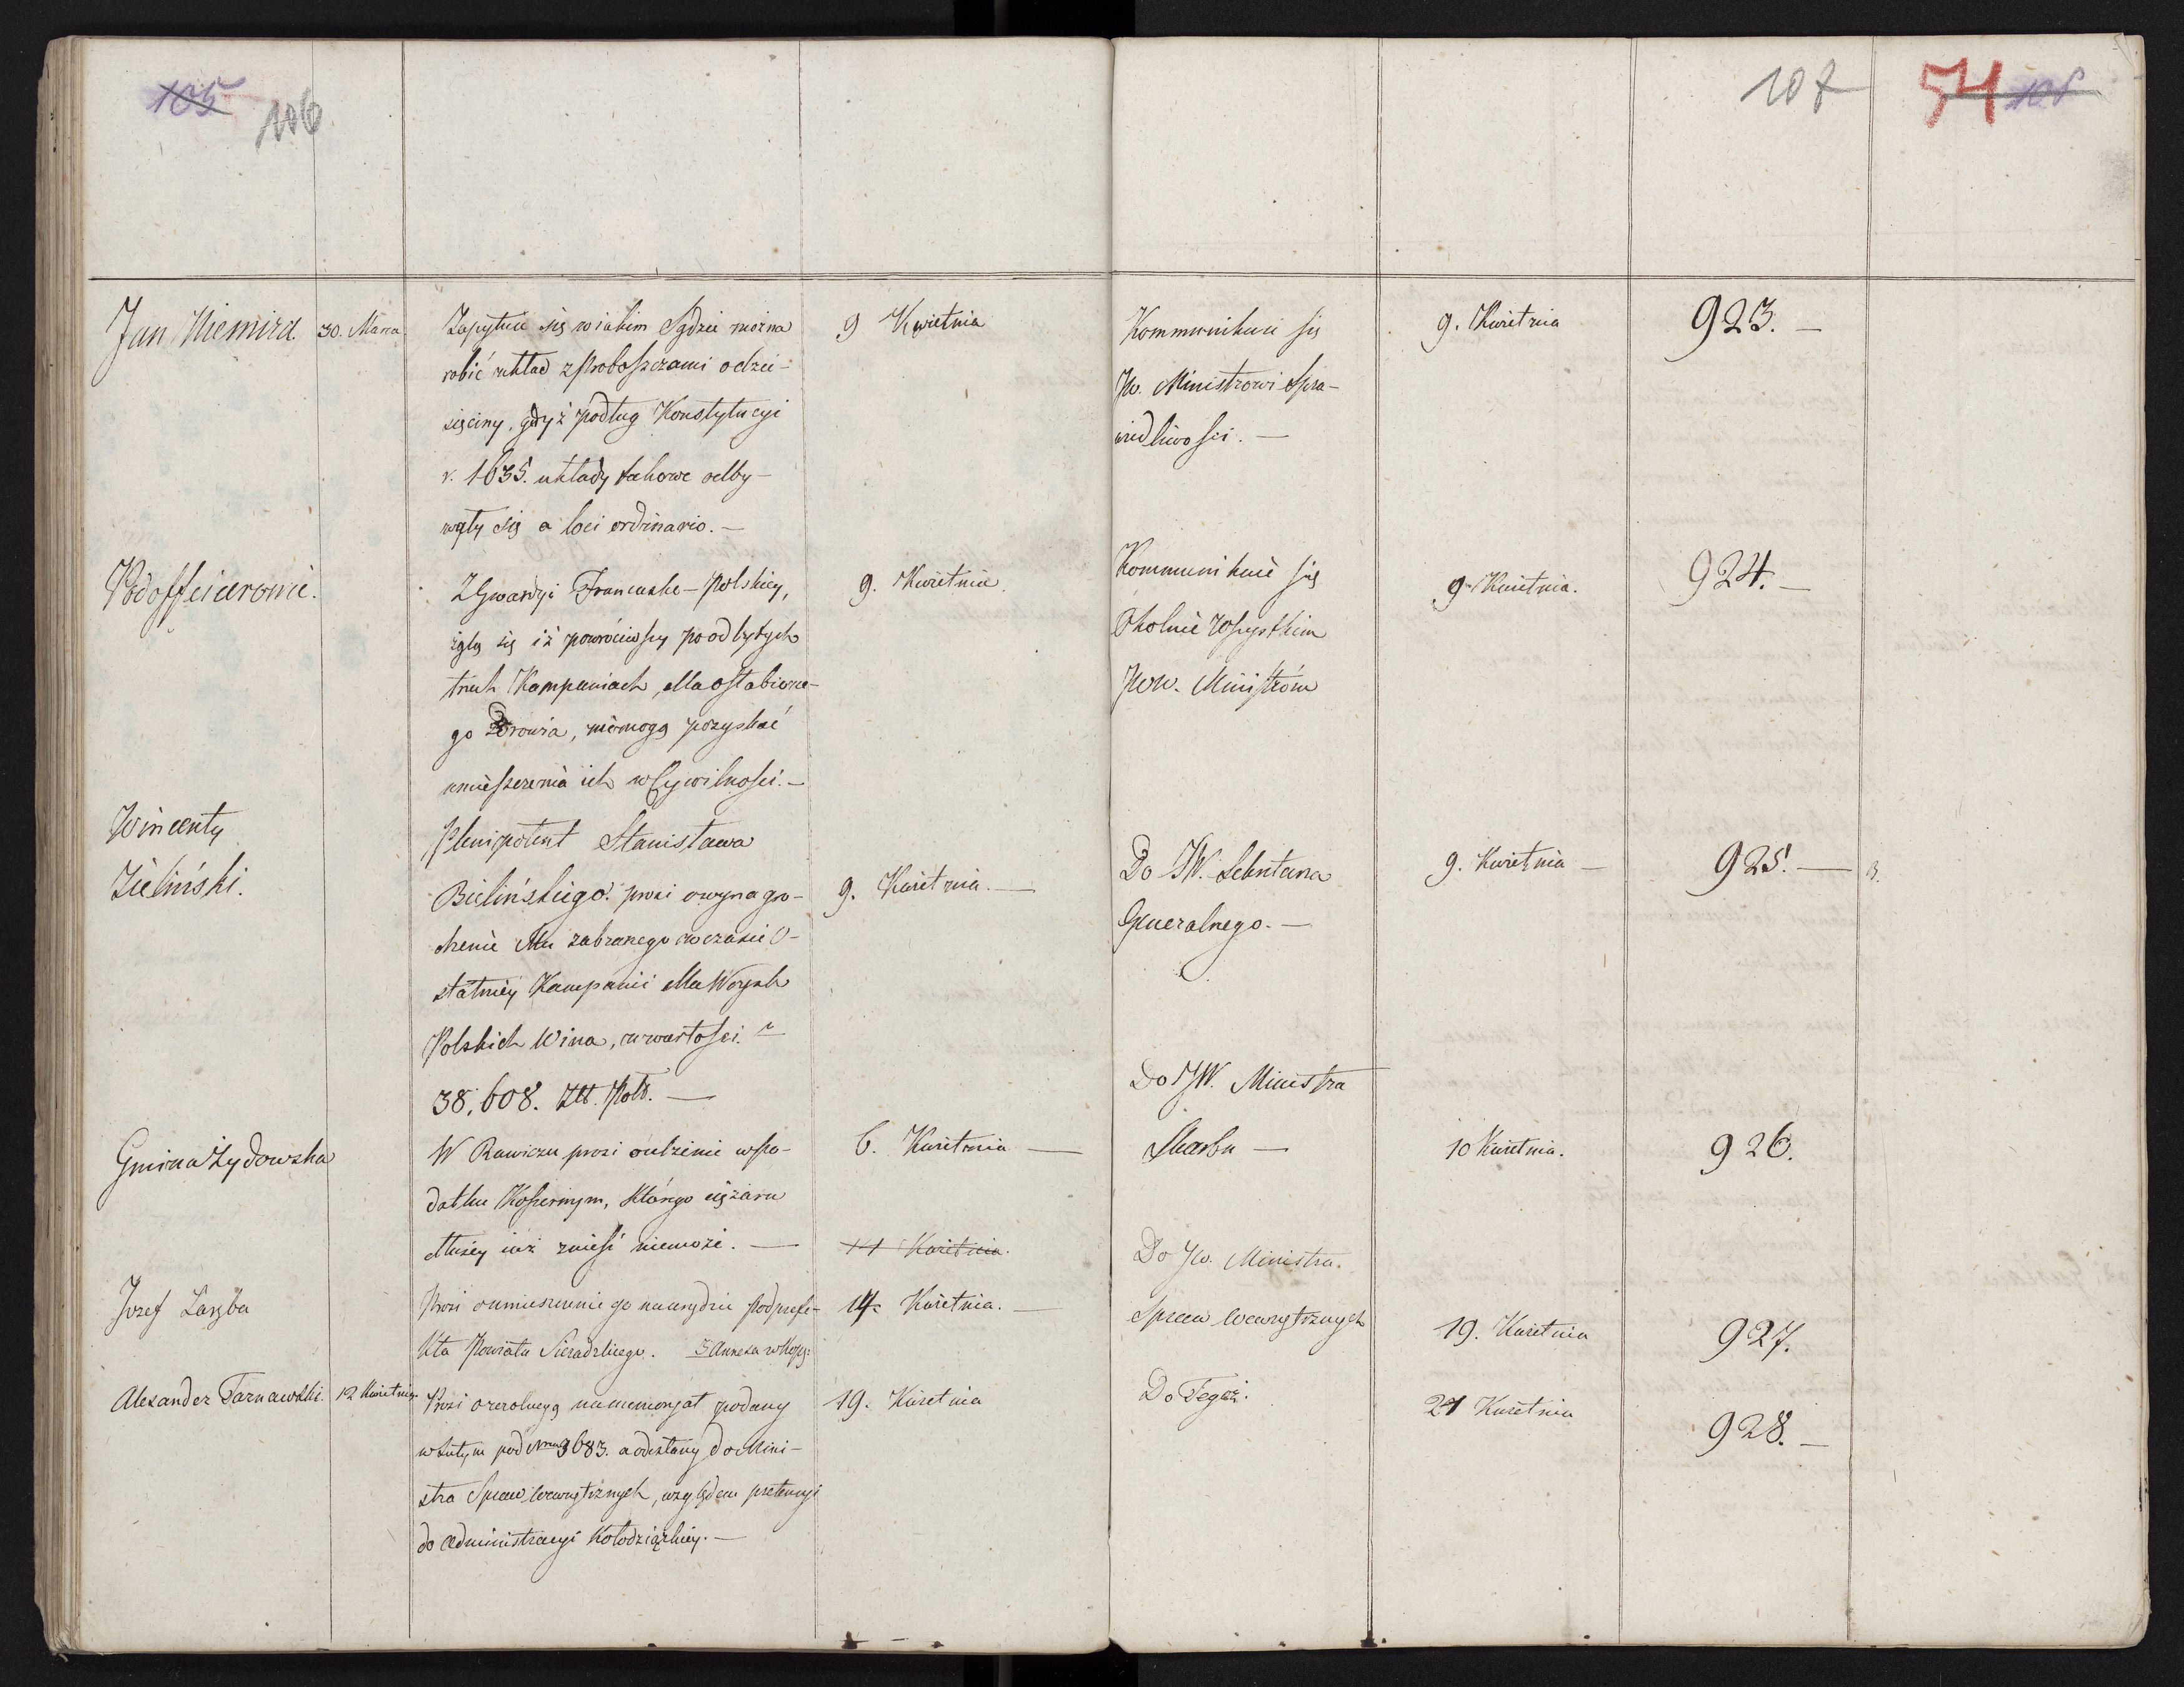 105 106
107 54 108
Jan Niemira. 30. Marca
Zapytuie się wiakim Sądzie można
robić układ z Proboszczami odzie-
sięciny, gdyż podług Konstytucyi
r. 1635. układy takowe odby-
wały się a loci ordinario. —
9 Kwietnia
Kommunikuie się
Jw. Ministrowi Spra-
wiedliwości. —
9. Kwietnia
923. —
Podofficerowie.
Z Gwardyi Francusko-Polskiey,
żalą się iż powróciwszy po odbytych
trzech Kampaniach, dla osłabione-
go Zdrowia, niemogą pozyskać
umieszczenia ich w Cywilności. —
9. Kwietnia
Kommunikuie się
Okolnie Wszystkim
Jww. Ministróm
9 Kwietnia.
924. —
Wincenty
Zieliński.
Plenipotent Stanisława
Bielińskiego prosi owynagro-
dzenie Mu zabranego wczasie O-
statniey Kampanii dla Woysk
Polskich Wina, wwartości
38,608. Złt. Pols. —
9. Kwietnia. —
Do JW. Sekretarza
Generalnego. —
9. Kwietnia —
925. —
Gmina Żydowska
W Rawiczu prosi oulżenie wpo-
datku Koszernym, którego ciężaru
dłużey iuż znieść niemoże. —
6. Kwietnia —
Do JW. Ministra
Skarbu —
10 Kwietnia.
926.
11 Kwietnia.
Jozef Zaręba
Prosi oumieszczenie go naurzędzie Podprefe-
kta Powiatu Sieradzkiego. 3 Annexa wkopij:
14. Kwietnia. —
Do Jw. Ministra
Spraw Wewnętrznych
19. Kwietnia
927.
Alexander Tarnawski. 12 Kwietnia.
Prosi orezolucyą namemoryał podany
wLutym pod Nrem 3683. aodesłany do Mini-
stra Spraw Wewnętrznych, względem pretensyi
do administracyi Kołodziązkiey. —
19. Kwietnia
Do Tegoż.
21 Kwietnia
928. —